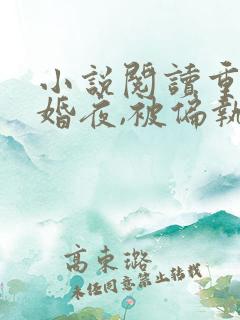 小説閱讀重
婚夜,被偏執
高東璐
未經同意禁止轉載